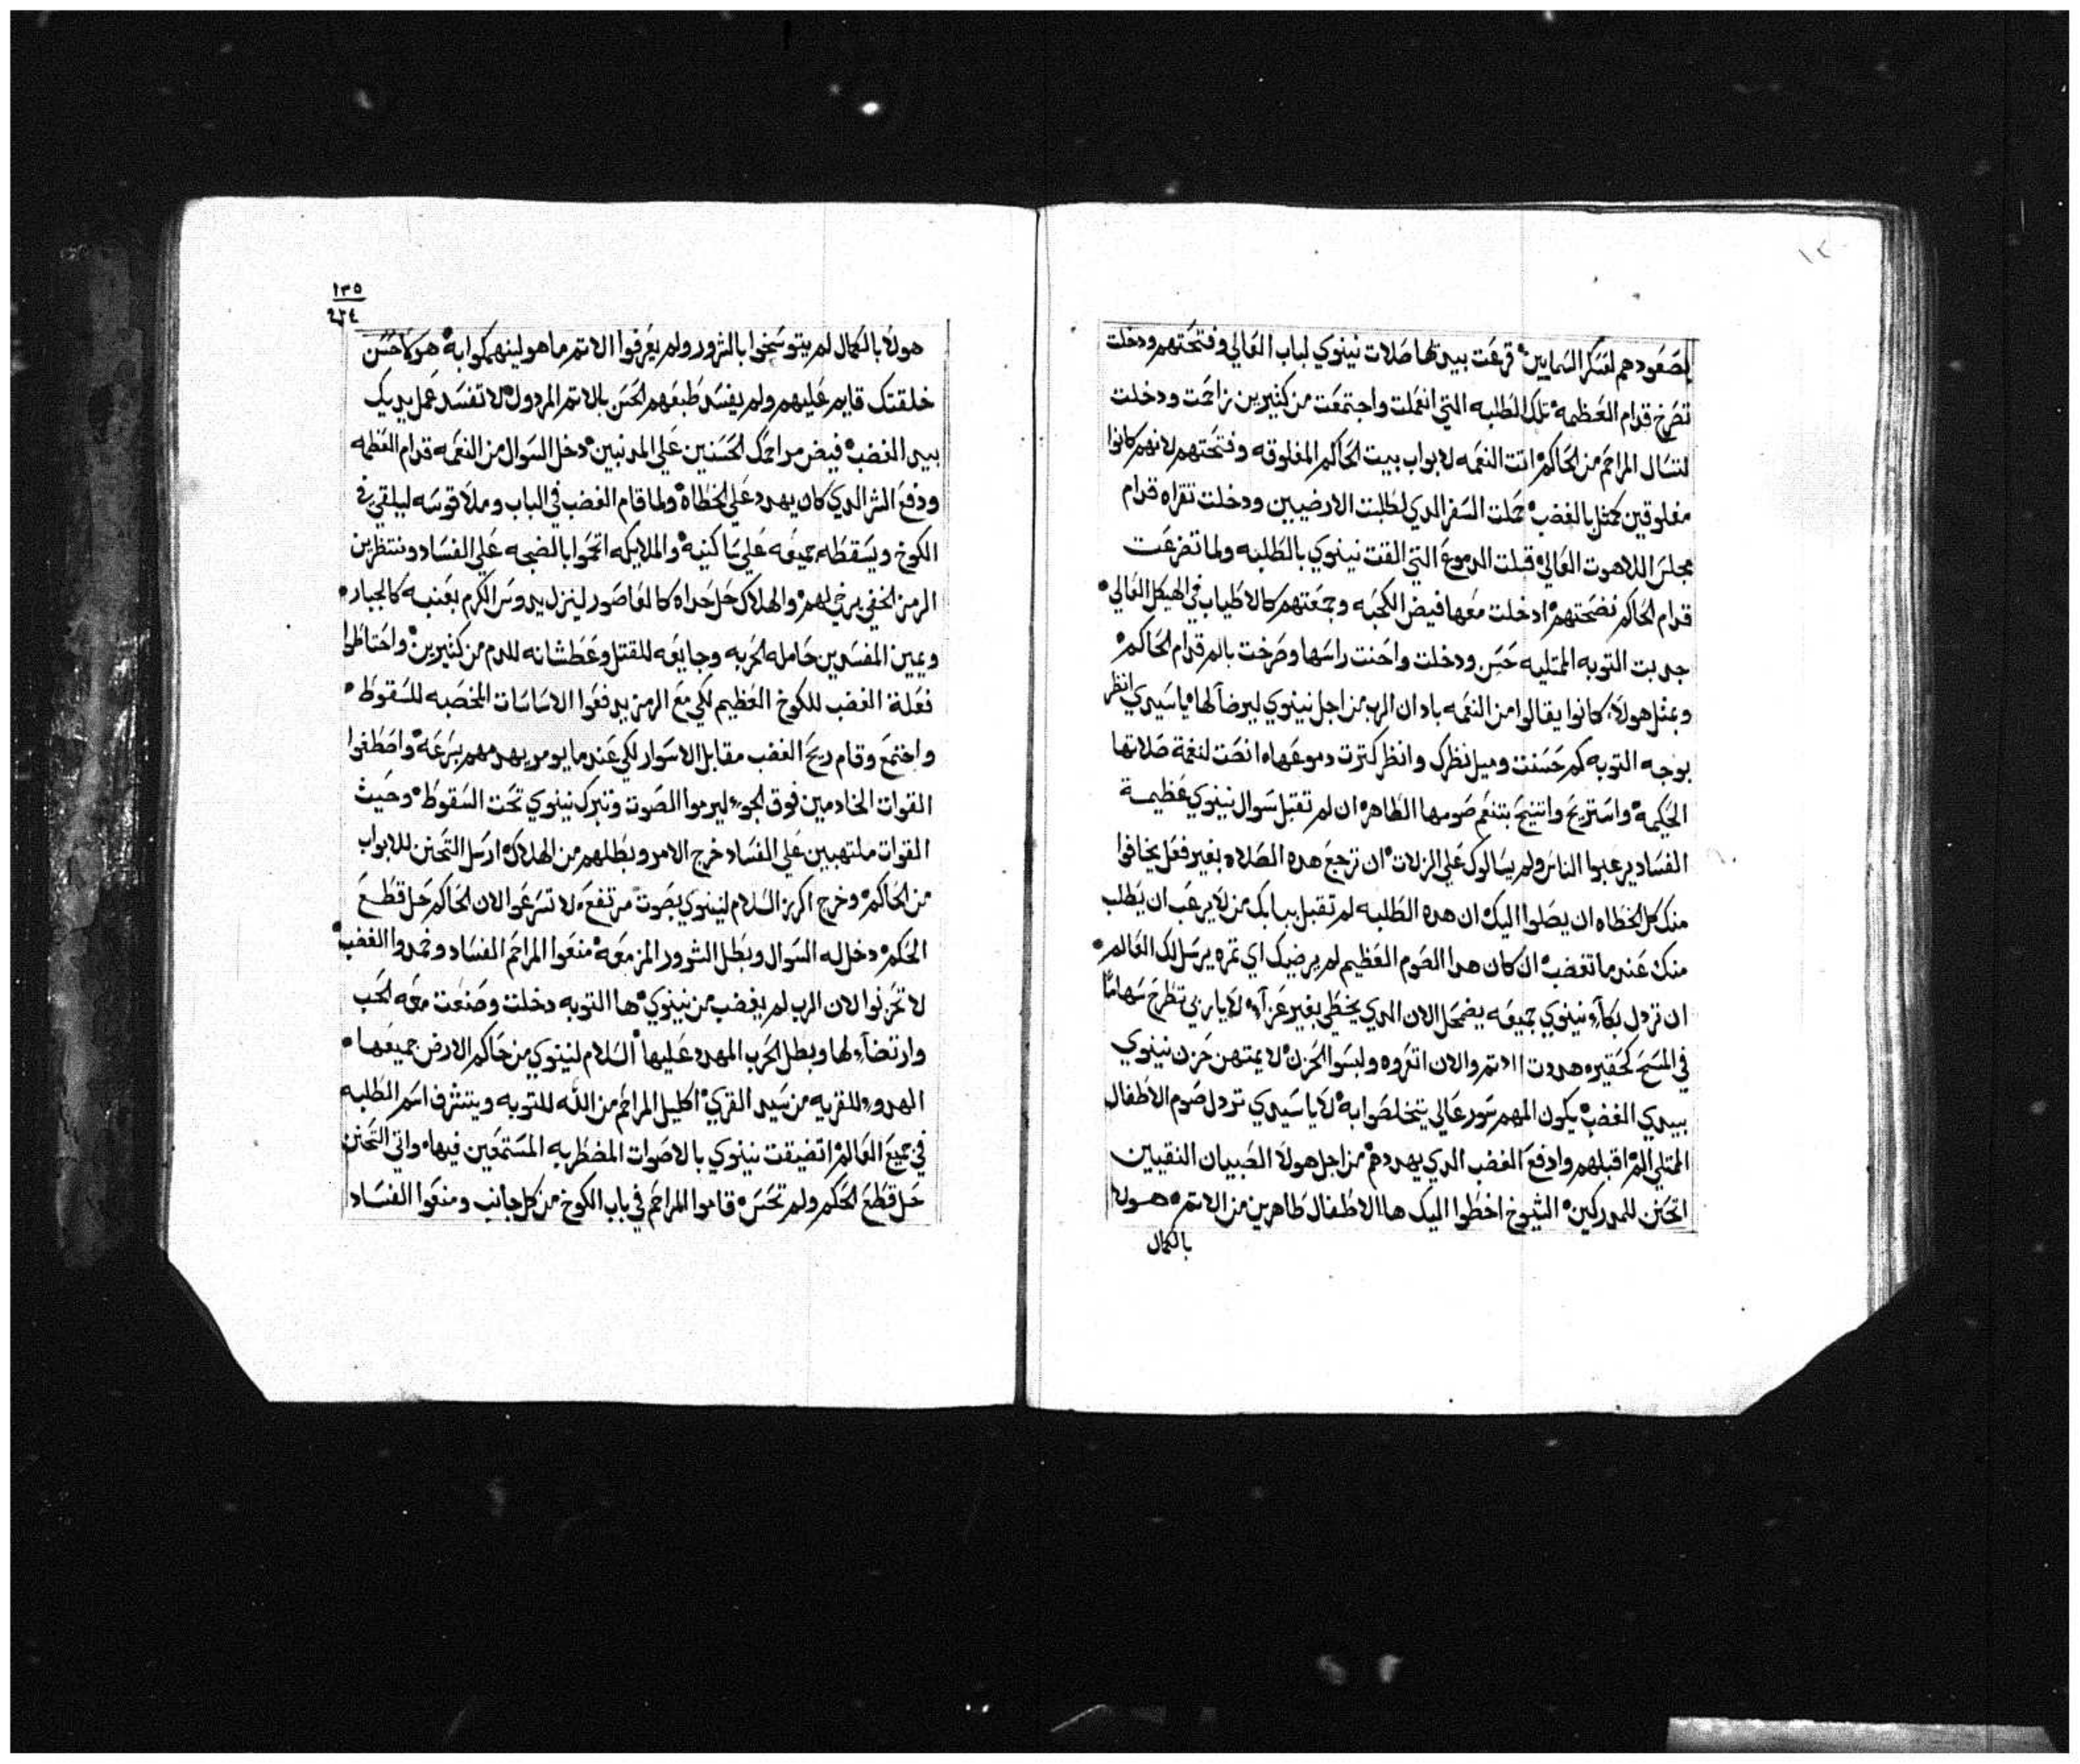 لصعودهم لعسكر السمايين* قرعت بيدتها صلات نينوي لباب العالي وفتحتهم ودخلت
تصرخ قدام العظمه* تلك الطلبه التي انعملت واجتمعت من كثيرين زاحمت ودخلت
لتسال المراحم من الحاكم* اتت النغمه لابواب بيت الحاكم المغلوقه وفتحتهم لانهم كانوا
مغلوقين كمثل بالغضب* حملت السفر الدي لطلبت الارضيين ودخلت تقراه قدام
مجلس اللاهوت العالي* قبلت الدموع التي القت نينوي بالطلبه ولما تضرعت
قدام الحاكم نضحتهم* ادخلت معها فيض الكحبه وجمعتهم كالاطياب في الهيكل العالي*
جدبت التوبه الممتليه حسن ودخلت واحنت راسها وصرخت بالم قدام الحاكم*
وبمثل هولاء كانوا يقالوا من النغمه بادان الرب من اجل نينوي ليرضا لها* يا سيدي انظر
بوجه التوبه كم حسنت وميل نظرك وانظر كترت دموعها* انصت لنغمة صلاتها
الحكيمه* واستريح وانتيح بتنعم صومها الطاهر* ان لم تقبل سوال نينوي عظيمة
الفساد يرعبوا الناس ولم يسالوك علي الزلات* ان ترجع هده الصلاه بغير فعل يخافوا
منك كل الخطاه ان يصلوا اليك* ان هده الطلبه لم تقبل ببابك من لا يرعب ان يطلب
منك عندما تغضب* ان كان هدا الصوم العظيم لم يرضيك اي تمره يرسل لك العالم*
ان تردل بكاء نينوي جميعه يضمحل الان الدي يخطي بغير عزاء* لا يا ربي تطرح سهاما
في المسح كحقيره هدوت الاتم والان اتعروه ولبسوا الحزن* لا يمتهن حزن نينوي
بيدي الغضب* يكون المهم سور عالي يتخلصوا به* لا يا سيدي تردل صوم الاطفال
الممتلي الم* اقبلهم وادفع الغضب الدي يهددهم* من اجل هولا الصبيان النقيين
اتحنن للمدركين* الشيوخ اخطوا اليك ها الاطفال طاهرين من الاتم* هولا
بالكمال
١٣٥
٢٣٤
هولا بالكمال لم يتوسخوا بالشرور ولم يعرفوا الاتم ما هو لينهمكوا به* هوكاحسن
خلقتك قايم عليهم ولم يفسد طبعهم الحسن بالاتم المردول* لا تفسد عمل يديك
بيد الغضب* فيض مراحمك الحسنين علي المدنبين* دخل السوال من النغمه قدام العظمه
ودفع الشر الدي كان يهدد علي الخطاه* ولما قام الغضب في الباب وملا قوسه ليلقي في
الكوخ ويسقطه جميعه علي ساكنيه* والملايكه اتحموا بالضجه علي الفساد ومنتظرين
الرمز الخفي يرخي لهم* والهلاك حل حداه كالعاصور لينزل يدوس الكرم بعنبه كالجبار*
ويمين المفسدين حامله الحربه وجايعه للقتل وعطشانه للدم من كثيرين* واحتاطوا
فعلة الغضب للكوخ العظيم لكي مع الرمز يدفعوا الاساسات المخصبه للسقوط*
واجتمع وقام ريح الغضب مقابل الاسوار لكي عندما يومر يهدمهم بسرعه* واصطفوا
القوات الخادمين فوق الجو* ليرموا الصوت وتبرك نينوي تحت السقوط* وحيث
القوات ملتهبين علي الفساد خرج الامر وبطلهم من الهلاك* ارسل التحنن للابواب
من الحاكم* وخرج اكرز السلام لنينوي بصوت مرتفع* لا تسرعوا لان الحاكم حل قطع
الحكم* دخل له السوال وبطل الشرور المزمعه* منعوا المراحم الفساد وخمدوا الغضب*
لا تحزنوا لان الرب لم يغضب من نينوي* ها التوبه دخلت وصنعت معه الحب
وارتضاء لها وبطل الحرب المهدد عليها* السلام لنينوي من حاكم الارض جميعها*
الهدوء للقريه من سيد القري* اكليل المراحم من الله للتوبه ويتشرف اسم الطلبه
في جميع العالم* اتضيقت نينوي بالاصوات المضطربه المستمعين فيها* واتي التحنن
حل قطع الحكم ولم تحس* قاموا المراحم في باب الكوخ من كل جانب ومنعوا الفساد